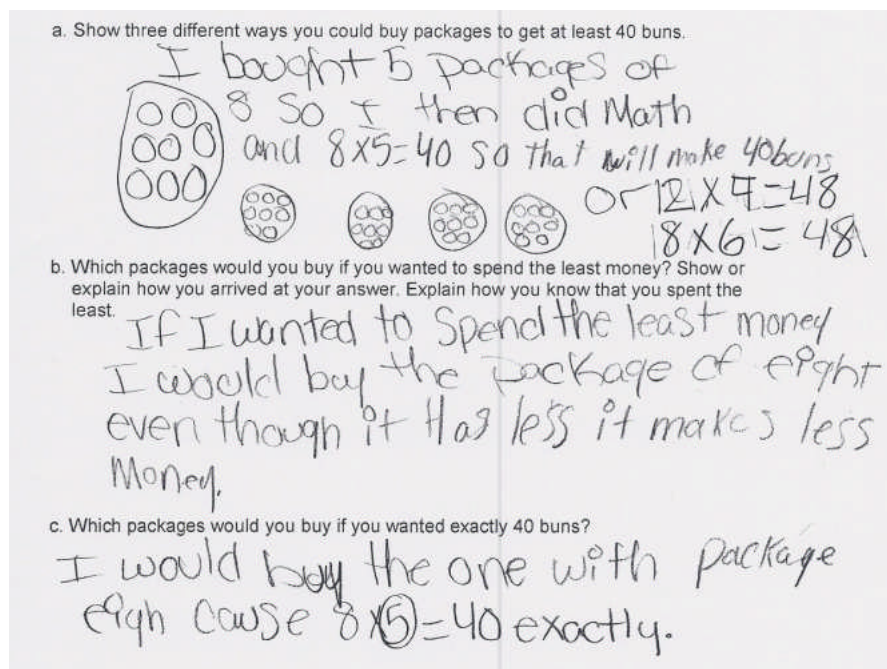 a. Show three different ways you could buy packages to get at least 40 buns.
I bought 5 packages of
8 So I then did Math
and 8x5=40 so that will make 40buns
or 12x4=48
8x6=48
b. Which packages would you buy if you wanted to spend the least money? Show or
explain how you arrived at your answer. Explain how you know that you spent the
least.
If I wanted to Spend the least money
I woould buy the package of eight
even though it Has less it makes less
Money.
c. Which packages would you buy if you wanted exactly 40 buns?
I would buy the one with package
eigh cause 8x5=40 exactly.